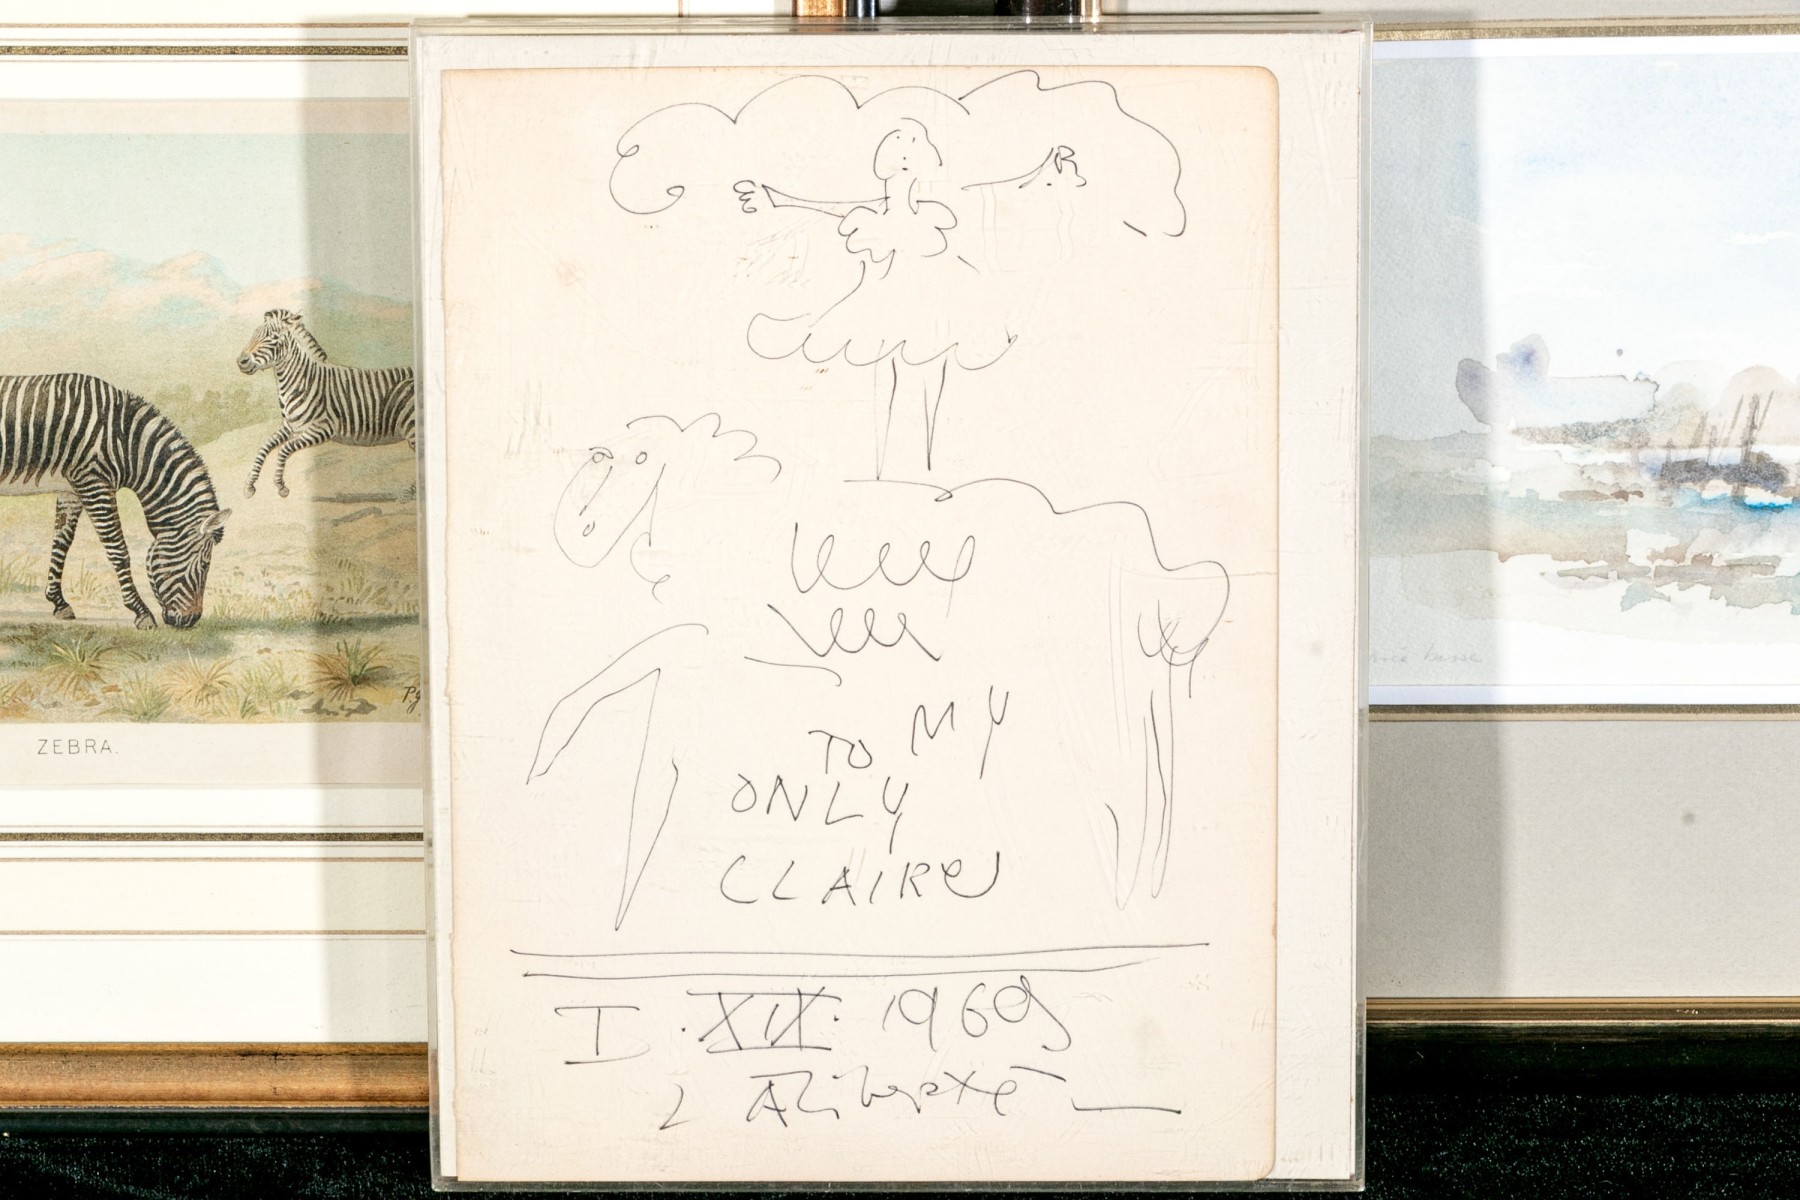 ZEBRA.
P.J
TO MY
ONLY
CLAIRE
I .XIX. 1969